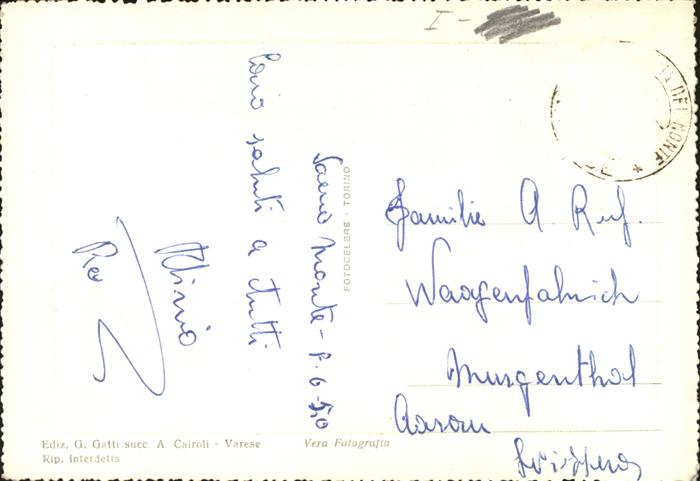 I -
DEL MONTE
Cari saluti a tutti
Sacro Monte - 8.6.50
FOTOCELERE · TORINO
Familie A. Ruf.
Waagenfabrich
Murgenthal
Aarau
Svizzera
Ediz. G. Gatti succ. A. Cairoli - Varese
Rip. interdetta
Vera Fotografia